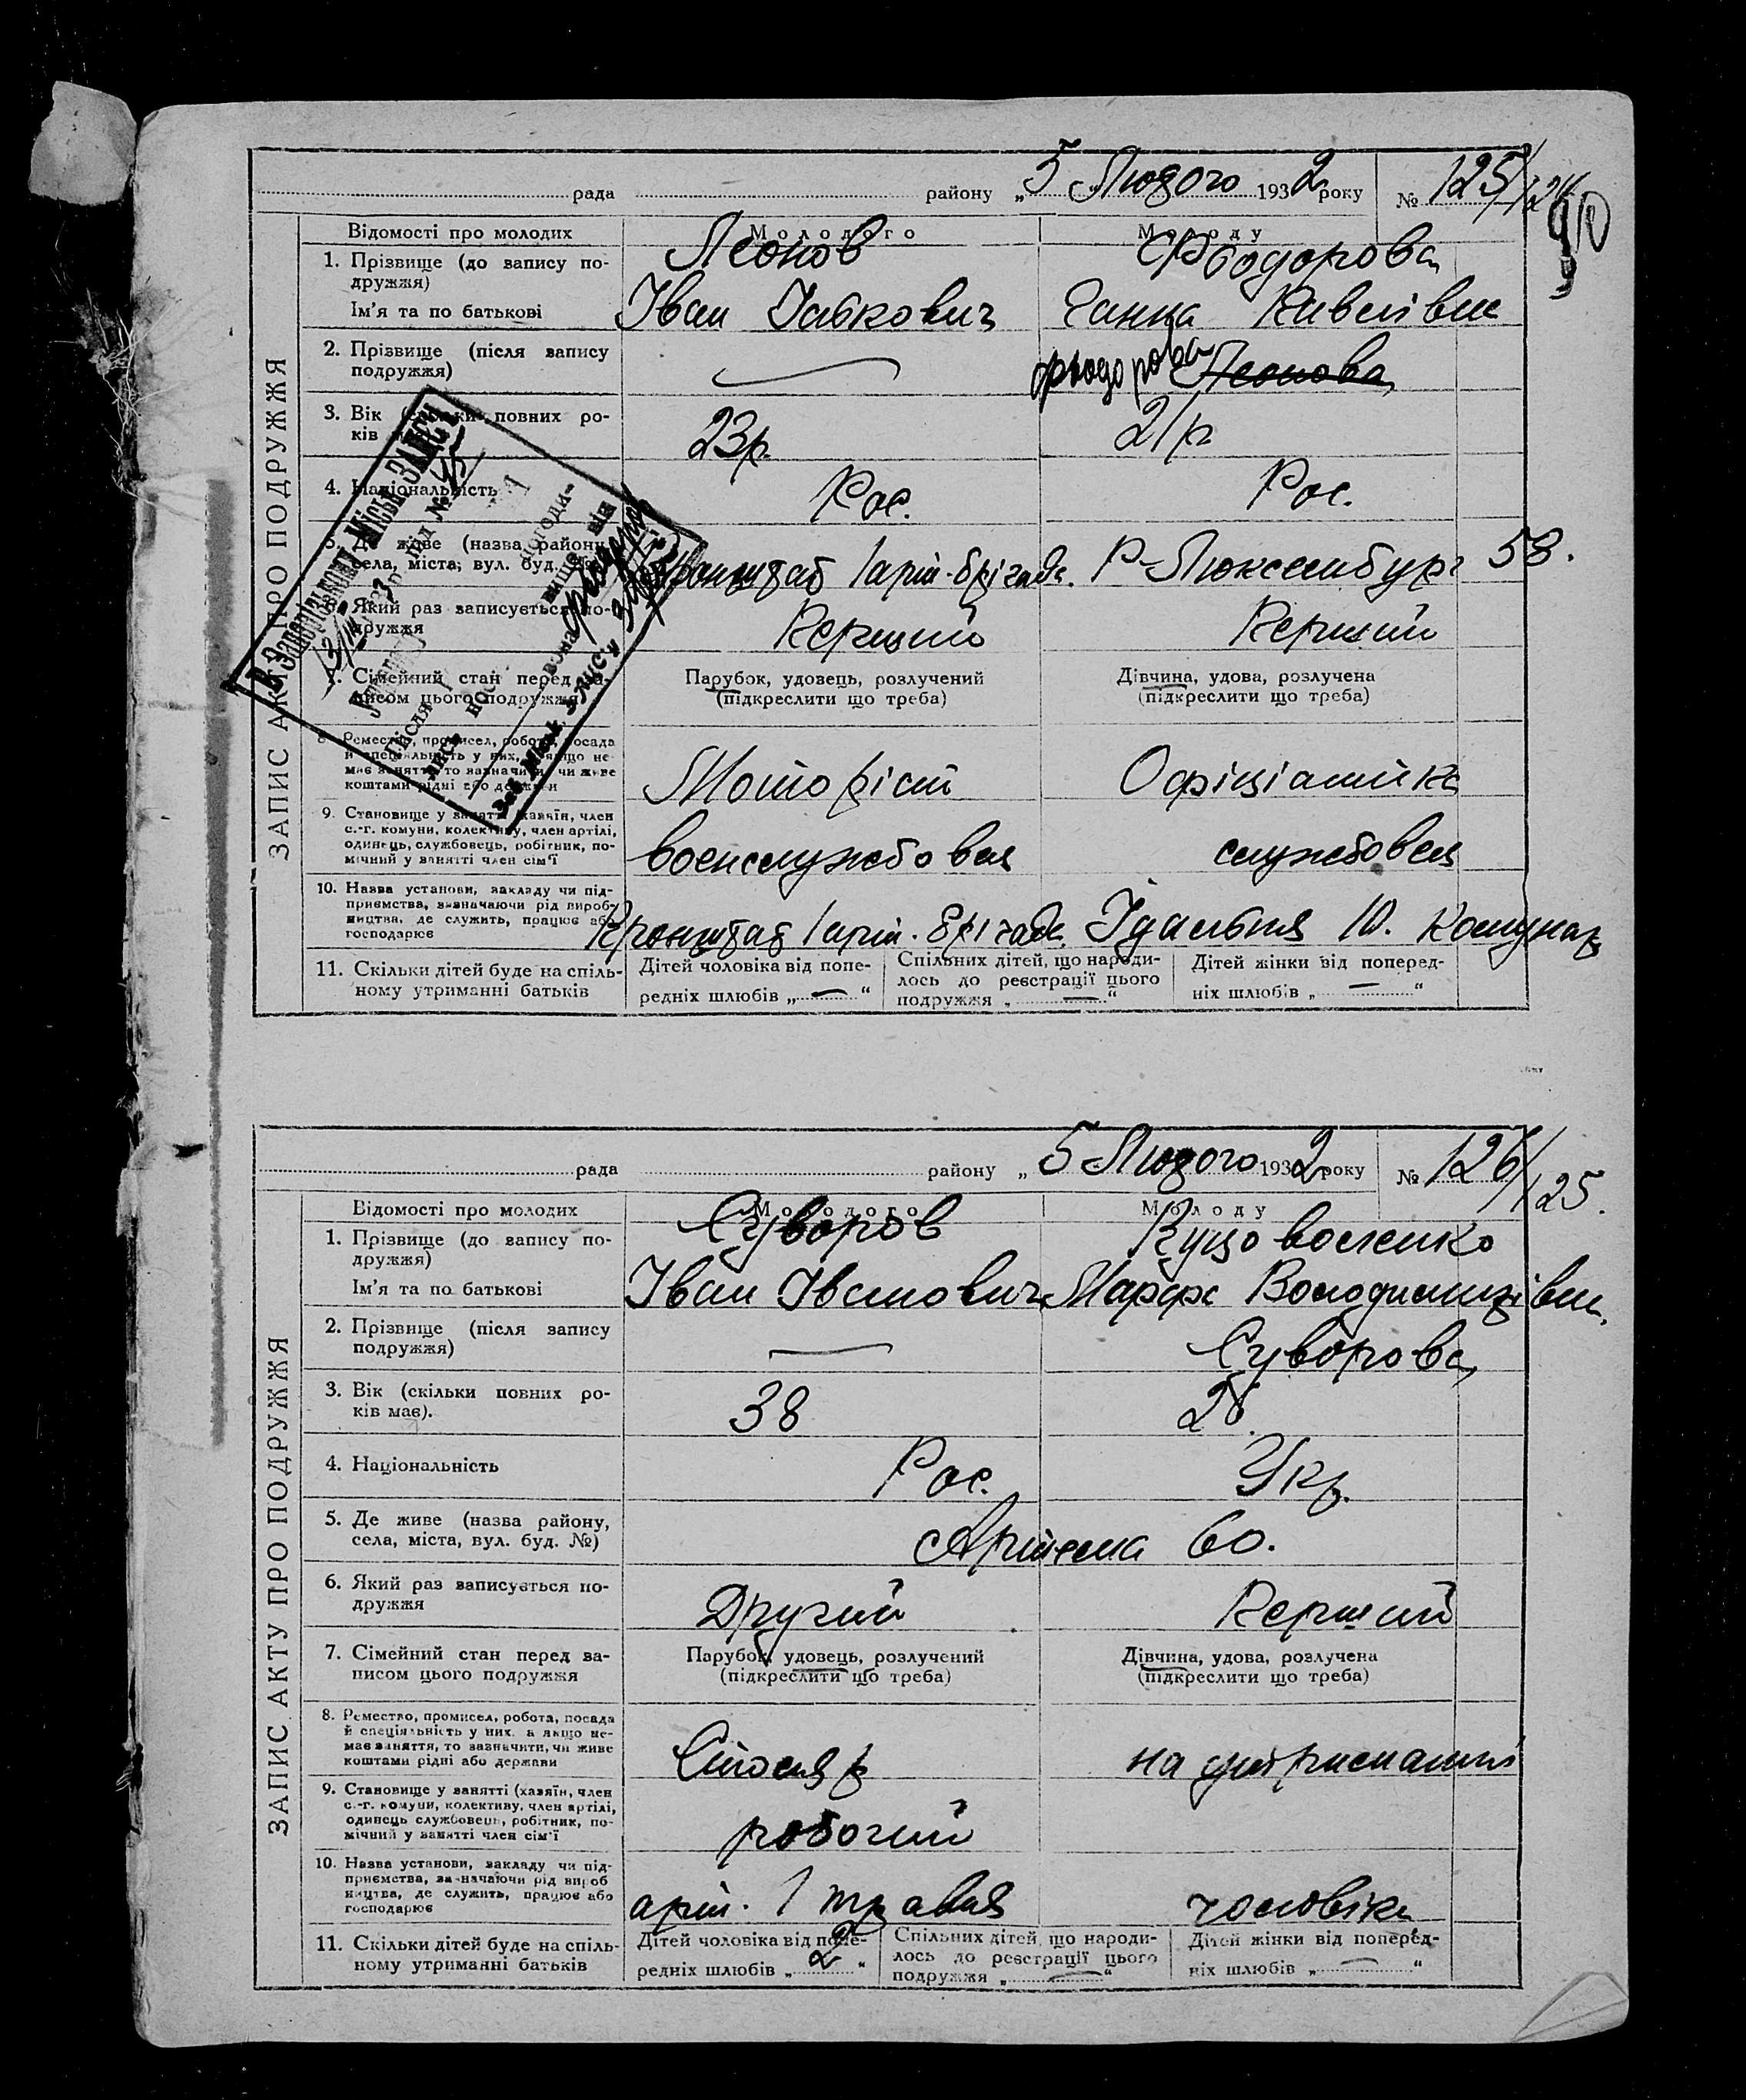 рада району „5“ Лютого 1932 року № 125/124
90
ЗАПИС АКТУ ПРО ПОДРУЖЖЯ
Відомості про молодих Молодого Молоду
1. Прізвище (до запису по-
дружжя) Леонов Фьодорова
Ім'я та по батькові Іван Ганна
2. Прізвище (після запису
подружжя) — фьодорова Леонова
3. Вік повних ро-
ків 23р. 21р.
4. Національність Рос. Рос.
5. Де живе (назва району,
села, міста, вул. буд. №) Кронштат 1 арт. брігада. Р-Люксембург 58.
6. Який раз записується по-
дружжя Перший Перший
7. Сімейний стан перед за-
писом цього подружжя Парубок, удовець, розлучений Дівчина, удова, розлучена
(підкреслити що треба) (підкреслити що треба)
8. Ремество, промисел, робота, посада
й спеціяльність у них, а якщо не-
має заняття, то зазначити, чи живе
коштами рідні або держави Моторіст Офіціантка
9. Становище у занятті (хазяїн, член
с.-г. комуни, колективу, член артілі,
одинець, службовець, робітник, по-
мічний у занятті член сім'ї військслужбовец службовец
10. Назва установи, закладу чи під-
приємства, зазначаючи рід вироб-
ництва, де служить, працює або
господарює Кронштат 1 арт. брігада. Їдальня 10. Комунар
11. Скільки дітей буде на спіль-
ному утриманні батьків Дітей чоловіка від попе-
редніх шлюбів „—“ Спільних дітей, що народи-
лось до реєстрації цього
подружжя „—“ Дітей жінки від поперед-
ніх шлюбів „—“
В Запорізькому Міськ. ЗАГСі
під № 45
Після
вона фьодорова
Зав. Міськ. ЗАГС'у
рада району „5 Лютого 1932 року № 126/125.
ЗАПИС АКТУ ПРО ПОДРУЖЖЯ
Відомості про молодих Молодого Молоду
1. Прізвище (до запису по-
дружжя) Суворов Куцоволенко
Ім'я та по батькові Іван Іванович Марфа Володимирівна.
2. Прізвище (після запису
подружжя) — Суворова
3. Вік (скільки повних ро-
ків має). 38 28.
4. Національність Рос. Укр.
5. Де живе (назва району,
села, міста, вул. буд. №) Артема 60.
6. Який раз записується по-
дружжя Другий Перший
7. Сімейний стан перед за-
писом цього подружжя Парубок, удовець, розлучений Дівчина, удова, розлучена
(підкреслити що треба) (підкреслити що треба)
8. Ремество, промисел, робота, посада
й спеціяльність у них, а якщо не-
має заняття, то зазначити, чи живе
коштами рідні або держави Столяр на утриманні
9. Становище у занятті (хазяїн, член
с.-г. комуни, колективу, член артілі,
одинець службовець, робітник, по-
мічний у занятті член сім'ї робочий
10. Назва установи, закладу чи під-
приємства, зазначаючи рід вироб
ництва, де служить, працює або
господарює арт. 1 травня чоловіка
11. Скільки дітей буде на спіль-
ному утриманні батьків Дітей чоловіка від попе-
редніх шлюбів „2“ Спільних дітей, що народи-
лось до реєстрації цього
подружжя „—“ Дітей жінки від поперед-
ніх шлюбів „—“